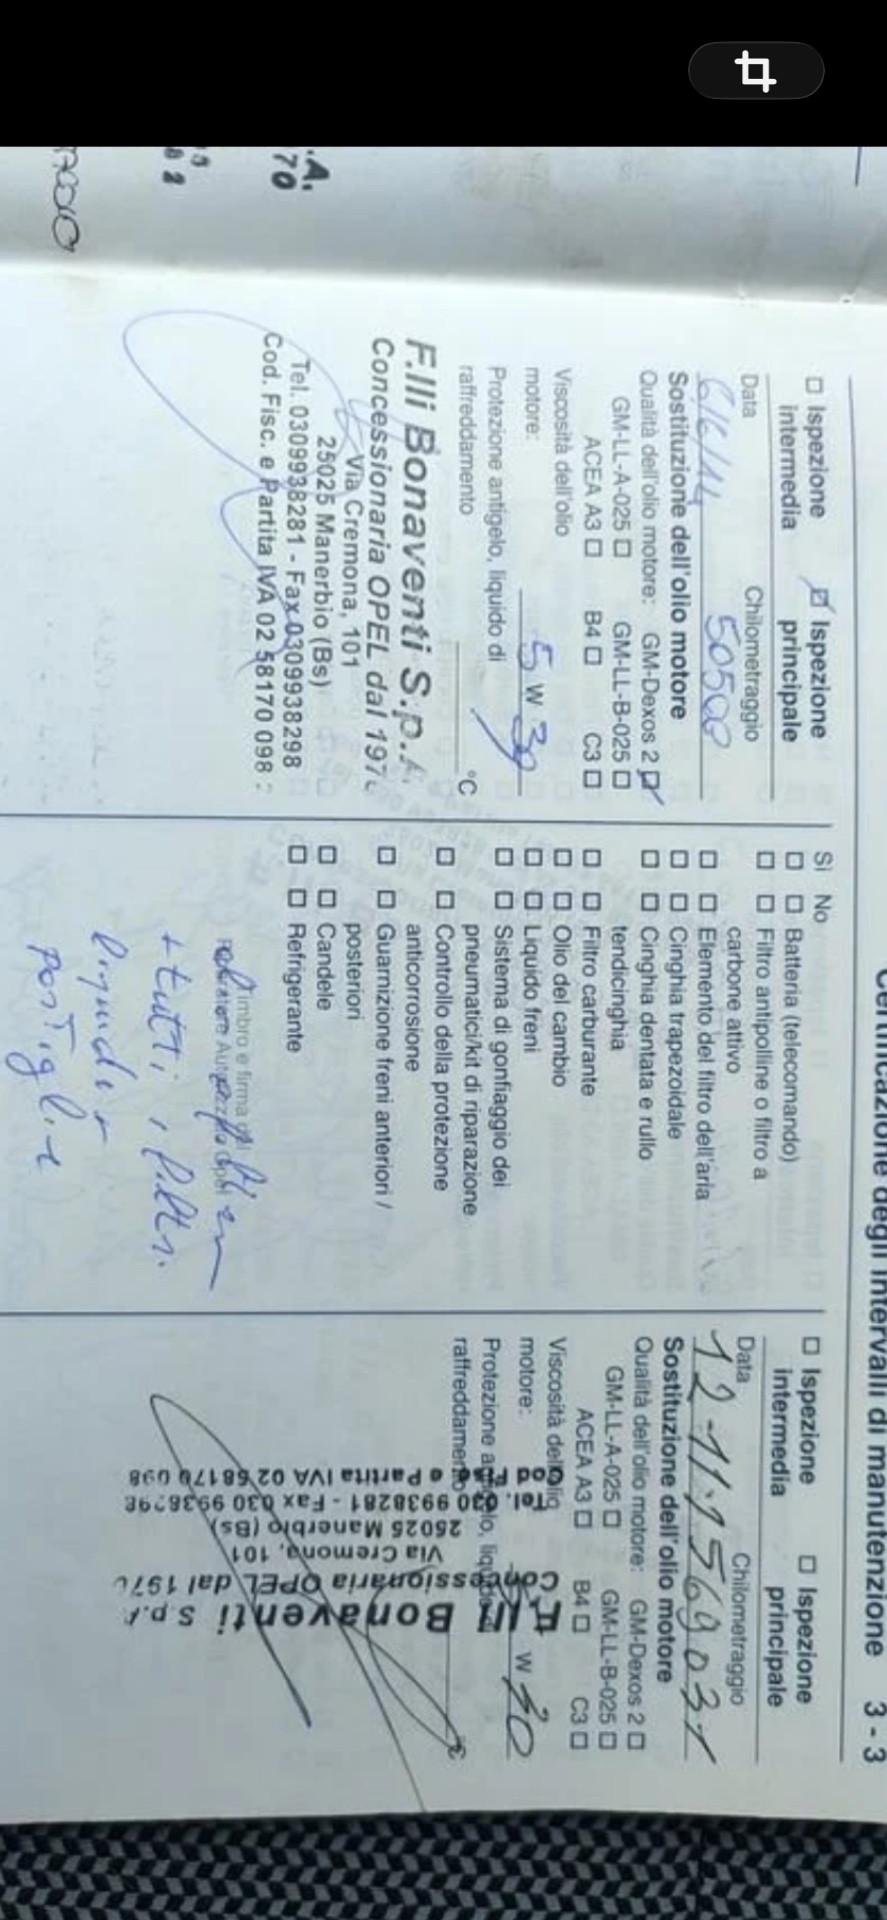 Certificazione degli intervalli di manutenzione 3 - 3
□ Ispezione intermedia
☑ Ispezione principale
Data
Chilometraggio
6/6/14 50500
Sostituzione dell'olio motore
Qualità dell'olio motore: GM-Dexos 2 ☑
GM-LL-A-025 □ GM-LL-B-025 □
ACEA A3 □ B4 □ C3 □
Viscosità dell'olio
motore: 5 W 30
Protezione antigelo, liquido di
raffreddamento °C
F.lli Bonaventi S.p.A
Concessionaria OPEL dal 197
Via Cremona, 101
25025 Manerbio (Bs)
Tel. 0309938281 - Fax 0309938298
Cod. Fisc. e Partita IVA 02 58170 098
Sì No
□ □ Batteria (telecomando)
□ □ Filtro antipolline o filtro a
carbone attivo
□ □ Elemento del filtro dell'aria
□ □ Cinghia trapezoidale
□ □ Cinghia dentata e rullo
tendicinghia
□ □ Filtro carburante
□ □ Olio del cambio
□ □ Liquido freni
□ □ Sistema di gonfiaggio dei
pneumatici/kit di riparazione
□ □ Controllo della protezione
anticorrosione
□ □ Guarnizione freni anteriori /
posteriori
□ □ Candele
□ □ Refrigerante
imbro e firma
+ tutti i filtri
liquidi
pastiglie
□ Ispezione intermedia
□ Ispezione principale
Data
Chilometraggio
12-11-15 69031
Sostituzione dell'olio motore
Qualità dell'olio motore: GM-Dexos 2 □
GM-LL-A-025 □ GM-LL-B-025 □
ACEA A3 □ B4 □ C3 □
Viscosità dell'olio
motore: W 30
Protezione
raffreddamento
Bonaventi S.p.A
Concessionaria OPEL dal 197
Via Cremona, 101
25025 Manerbio (Bs)
Tel. 030 9938281 - Fax 030 9938298
Cod Fisc e Partita IVA 02 58170 098
.A.
70